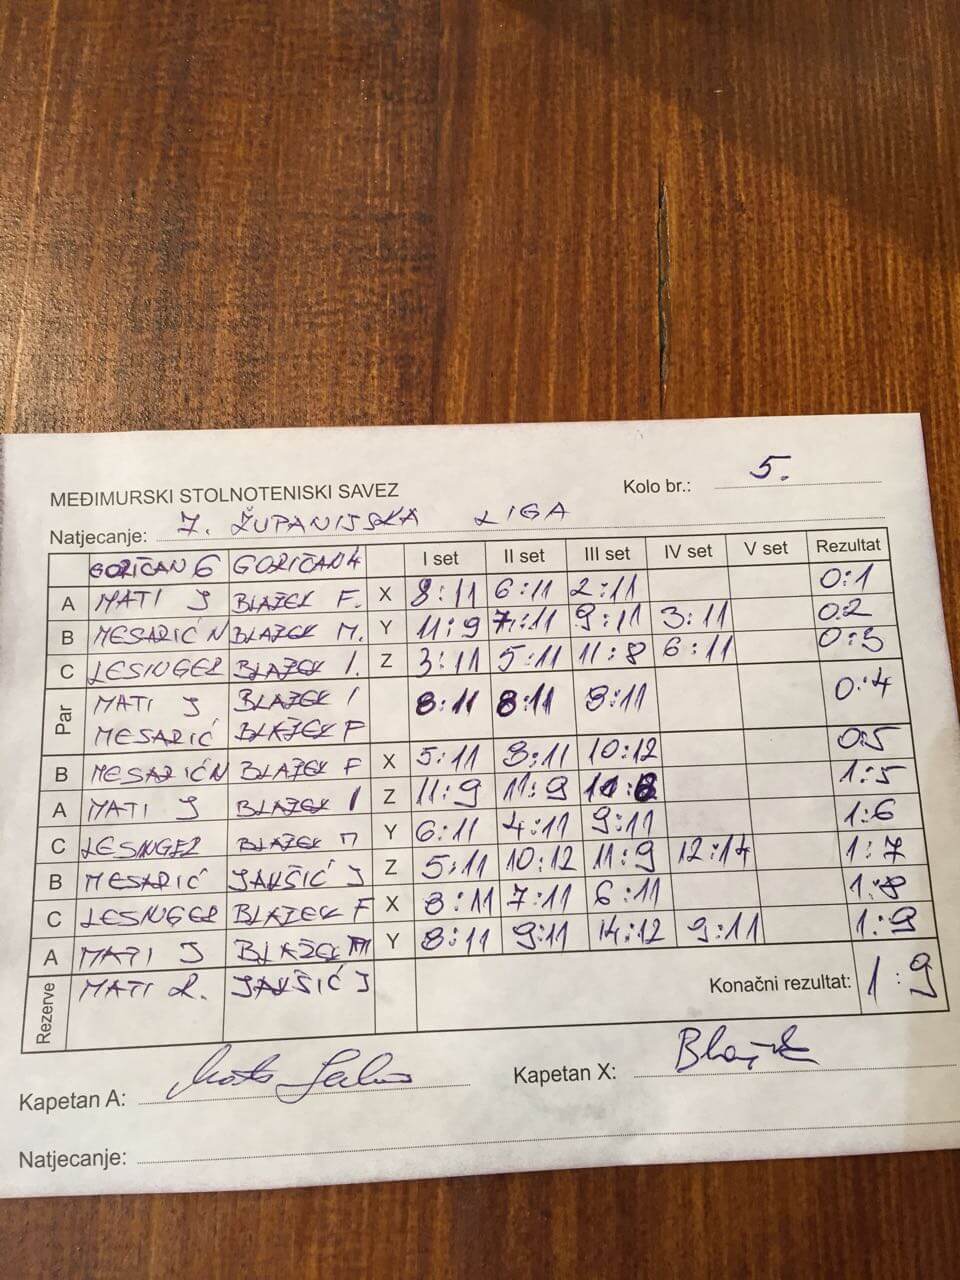 MEĐIMURSKI STOLNOTENISKI SAVEZ Kolo br.: 5.
Natjecanje: 7. ŽUPANIJSKA LIGA
GORIČAN 6 GORIČAN 4 I set II set III set IV set V set Rezultat
A MATI J BLAŽEK F. X 8:11 6:11 2:11 0:1
B MESARIĆ N BLAŽEK M. Y 11:9 7:11 9:11 3:11 0:2
C LESINGER BLAŽEK I. Z 3:11 5:11 11:8 6:11 0:3
Par MATI J BLAŽEK I 8:11 8:11 8:11 0:4
MESARIĆ BLAŽEK F
B MESARIĆ N BLAŽEK F X 5:11 8:11 10:12 0:5
A MATI J BLAŽEK I Z 11:9 11:9 11:8 1:5
C LESINGER BLAŽEK M Y 6:11 4:11 9:11 1:6
B MESARIĆ JAKŠIĆ J Z 5:11 10:12 11:9 12:14 1:7
C LESINGER BLAŽEK F X 8:11 7:11 6:11 1:8
A MATI J BLAŽEK M Y 8:11 9:11 14:12 9:11 1:9
Rezerve MATI R. JAKŠIĆ J Konačni rezultat: 1:9
Kapetan A: Kapetan X:
Natjecanje: